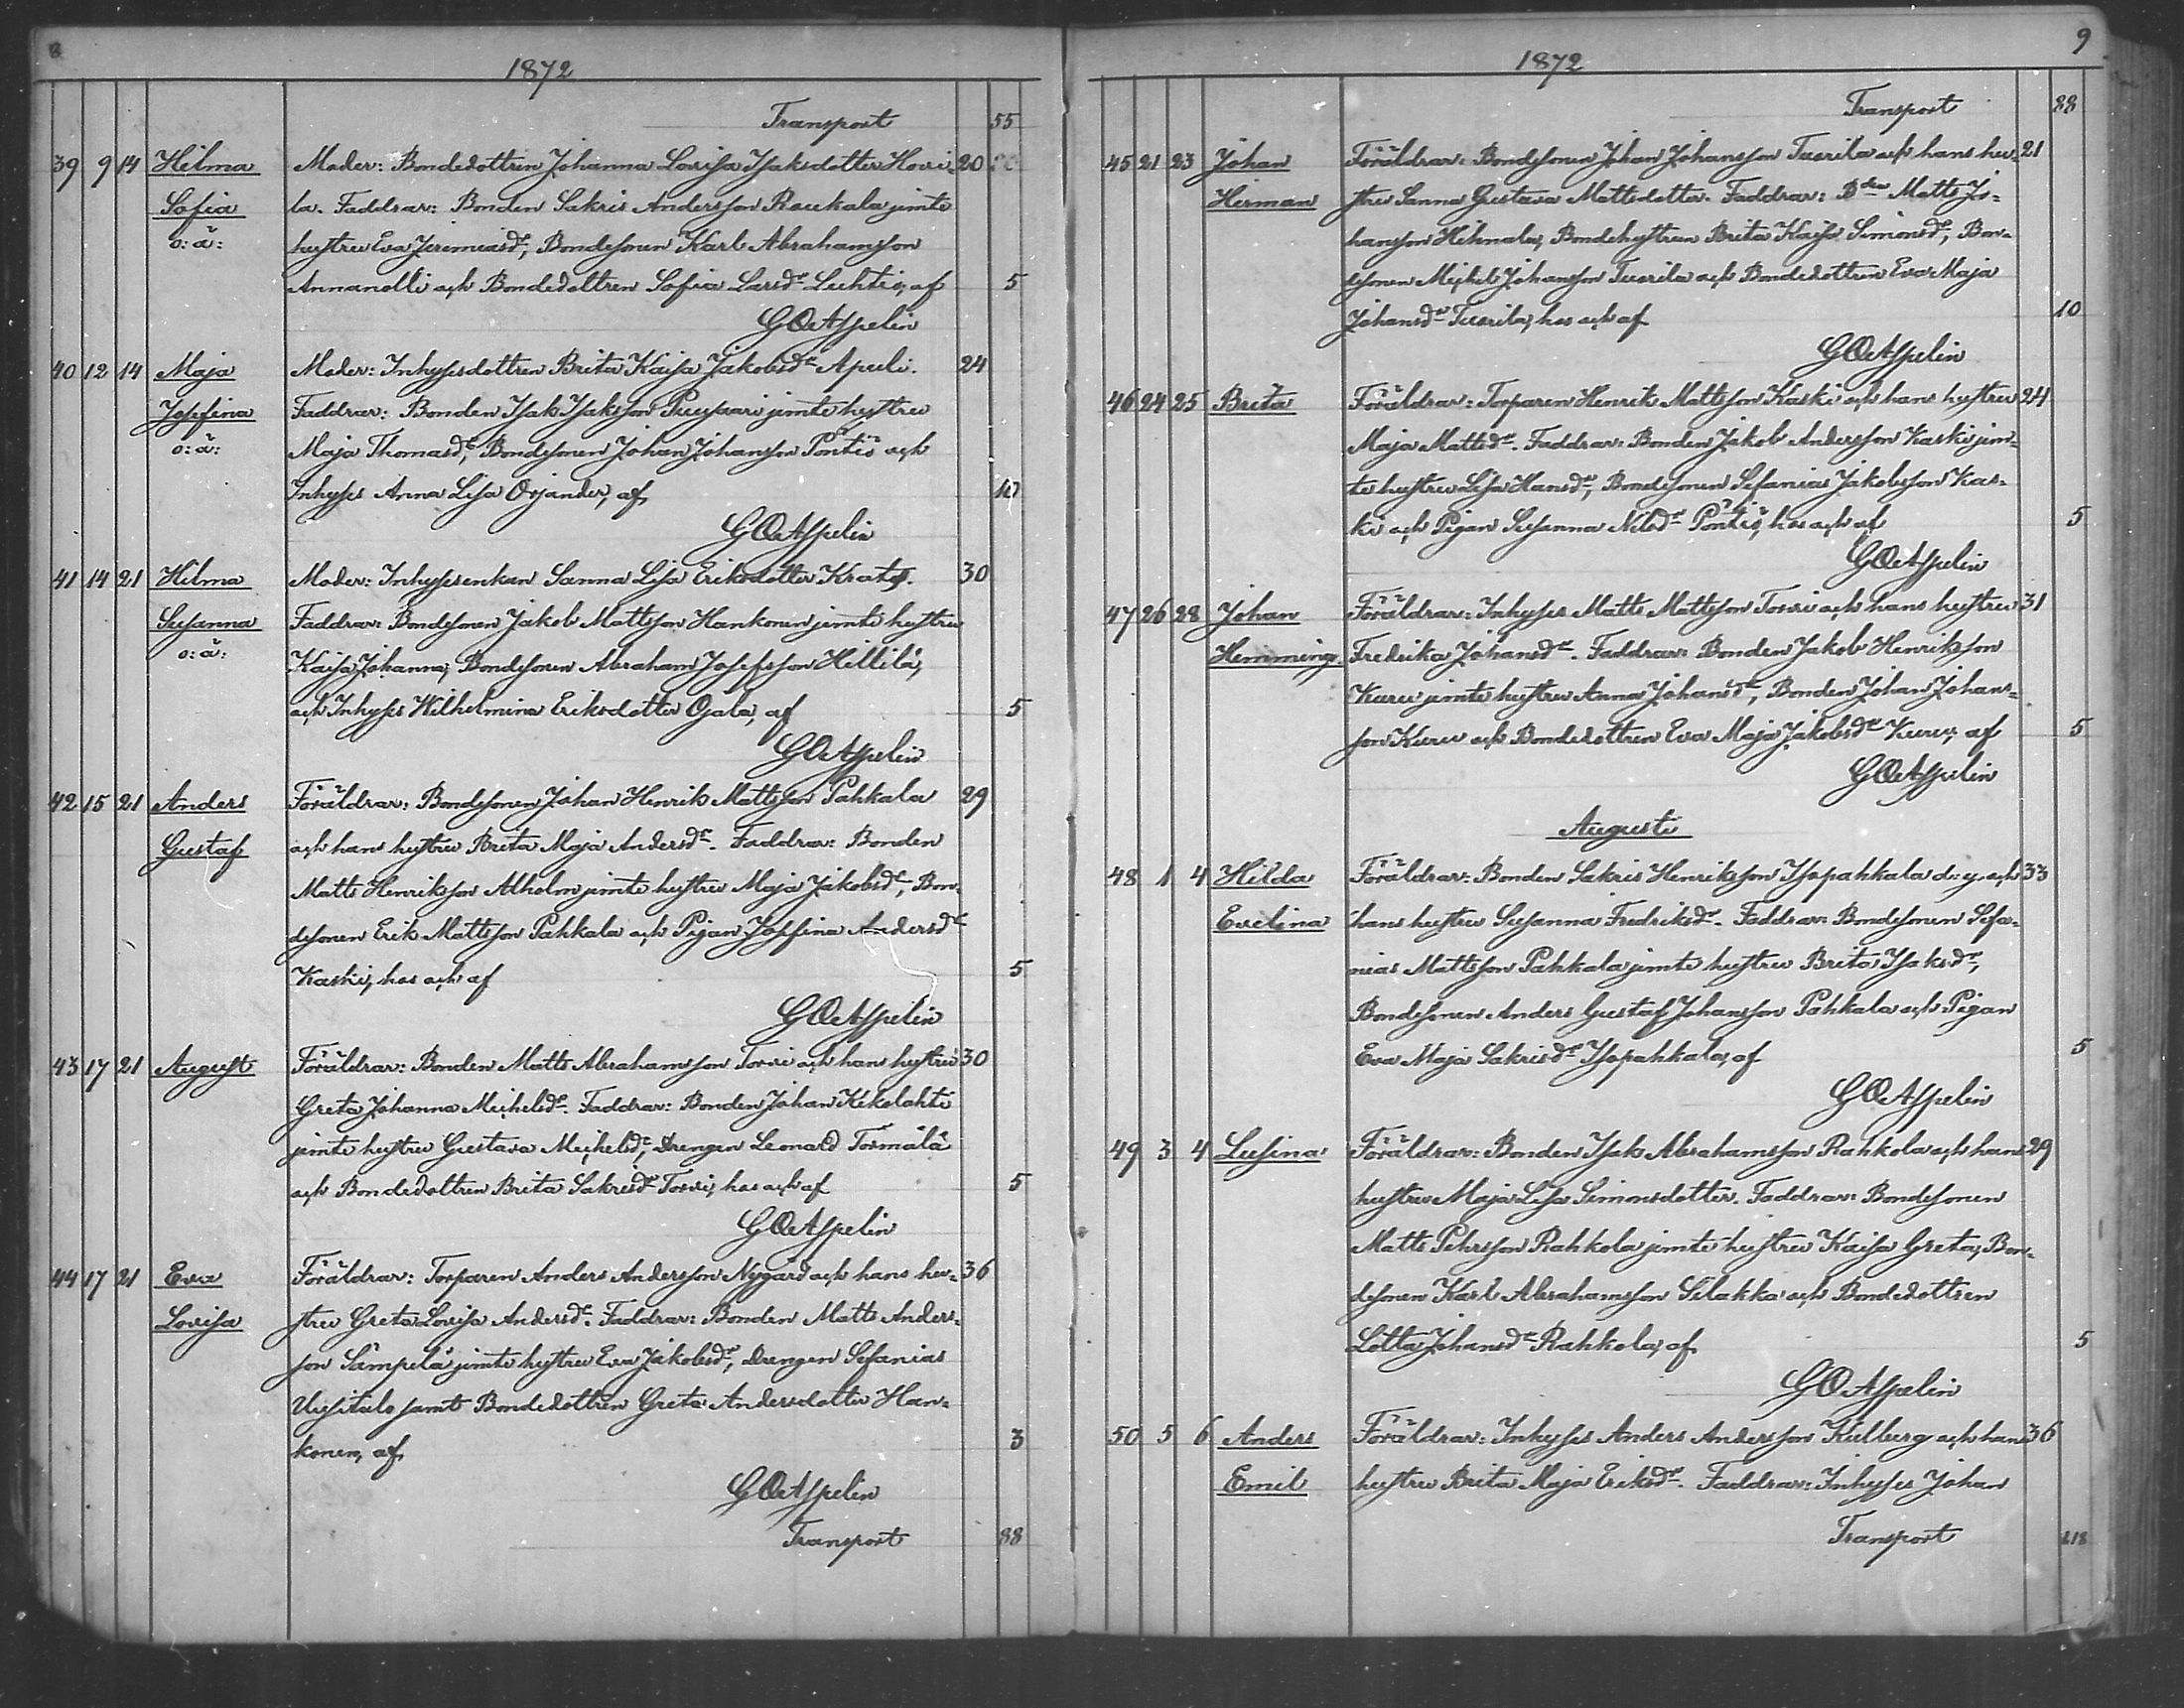 8
1872
Transport 55
39 9 14 Hilma Moder: Bondedottren Johanna Lovisa Isaksdotter Hovi- 20
Sofia la. Faddrar: Bonden Sakris Andersson Raukala jemte
o: ä: hustru Eva Jeremiasdr, Bondesonen Karl Abrahamsson
Annanolli och Bondedottren Sofia Larsdr Luhtio, af 5
GOAspelin
40 12 14 Maja Moder: Inhysesdottren Brita Kaisa Jakobsdr Apuli. 24
Josefina Faddrar: Bonden Isak Isaksson Puusaari jemte hustru
o: ä: Maja Thomasdr, Bondesonen Johan Johansson Pöntiö och
Inhyses Anna Lisa Orjander, af 10
GOAspelin
41 14 21 Hilma Moder: Inhysesenkan Sanna Lisa Eriksdotter Krats. 30
Susanna Faddrar: Bondesonen Jakob Mattsson Hankonen jemte hustru
o: ä: Kaisa Johanna, Bondesonen Abraham Josefsson Hillilä,
och Inhyses Wilhelmina Eriksdotter Ojala, af 5
GOAspelin
42 15 21 Anders Föräldrar: Bondesonen Johan Henrik Mattsson Pahkala 29
Gustaf och hans hustru Brita Maja Andersdr. Faddrar: Bonden
Matts Henriksson Alholm jemte hustru Maja Jakobsdr, Bon-
desonen Erik Mattsson Pahkala och Pigan Josefina Andersdr
Kaski, hos och af 5
GOAspelin
43 17 21 August Föräldrar: Bonden Matts Abrahamsson Torvi och hans hustru 30
Greta Johanna Michelsdr. Faddrar: Bonden Johan Kekolahti
jemte hustru Gustava Michelsdr, Drengen Leonard Tormälä
och Bondedottren Brita Sakrisdr Torvi, hos och af 5
GOAspelin
44 17 21 Eva Föräldrar: Torparen Anders Andersson Nygård och hans hu- 36
Lovisa stru Greta Lovisa Andersdr. Faddrar: Bonden Matts Anders-
son Sämpelä jemte hustru Eva Jakobsdr, Drengen Sefanias
Uusitalo samt Bondedottren Greta Andersdotter Han-
konen, af 3
GOAspelin
Transport 88
9
1872
Transport 88
45 21 23 Johan Föräldrar: Bondesonen Johan Johansson Tuorila och hans hu- 21
Herman stru Sanna Gustava Mattsdotter. Faddrar: Bden Matts Jo-
hansson Hihnala, Bondehustrun Brita Kaisa Simonsdr, Bon-
desonen Michel Johansson Tuorila och Bondedottren Eva Maja
Johansdr Tuorila, hos och af 10
GOAspelin
46 24 25 Brita Föräldrar: Torparen Henrik Mattsson Kaski och hans hustru 24
Maja Mattsdr. Faddrar: Bonden Jakob Andersson Kaski jem-
te hustru Lisa Hansdr, Bondesonen Sefanias Jakobsson Kas-
ki och Pigan Susanna Nilsdr Pöntiö, hos och af 5
GOAspelin
47 26 28 Johan Föräldrar: Inhyses Matts Mattsson Torvi och hans hustru 31
Hemming Fredrika Johansdr. Faddrar: Bonden Jakob Henriksson
Kuru jemte hustru Anna Johansdr, Bonden Johan Johans-
son Kuru och Bondedottren Eva Maja Jakobsdr Kuru, af 5
GOAspelin
Augusti
48 1 4 Hilda Föräldrar: Bonden Sakris Henriksson Isopahkala d: y. och 33
Evelina hans hustru Susanna Fredriksdr. Faddrar: Bondesonen Sefa-
nias Mattsson Pahkala jemte hustru Brita Isaksdr,
Bondesonen Anders Gustaf Johansson Pahkala och Pigan
Eva Maja Sakrisdr Isopahkala, af 5
GOAspelin
49 3 4 Lusina Föräldrar: Bonden Isak Abrahamsson Rahkola och hans 29
hustru Maja Lisa Simonsdotter. Faddrar: Bondesonen
Matts Pehrsson Rahkola jemte hustru Kaisa Greta, Bon-
desonen Karl Abrahamsson Silakka och Bondedottren
Lotta Johansdr Rahkola, af 5
GOAspelin
50 5 6 Anders Föräldrar: Inhyses Anders Andersson Kullberg och hans 36
Emil hustru Brita Maja Eriksdr. Faddrar: Inhyses Johan
Transport 118